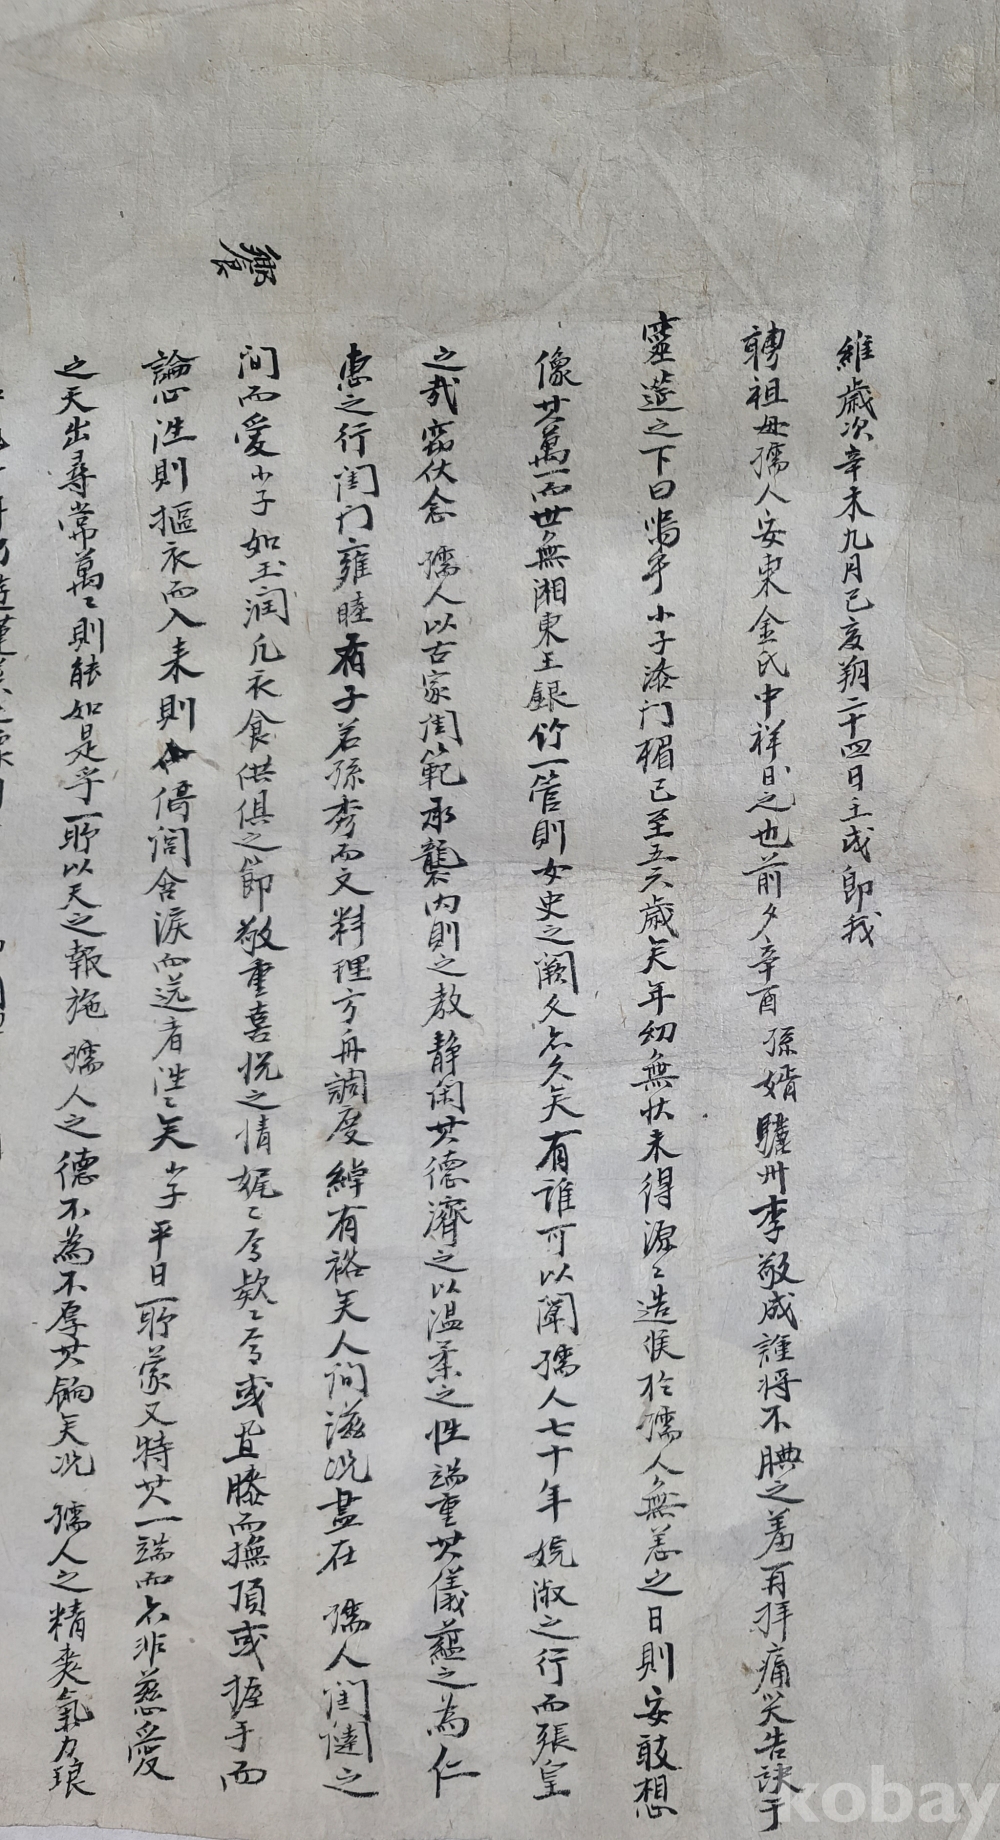 維歲次辛未九月己亥朔二十四日壬戌卽我
聘祖母孺人安東金氏中祥日之也前夕辛酉 孫婿驪州李敬成謹將不腆之羞再拜痛哭告訣于
靈筵之下曰嗚乎小子添門楣已至五六歲矣年幼無狀未得源〻造候於孺人無恙之日則安敢想
像其萬一而世無湘東王銀竹一管則女史之闕文亦久矣有誰可以闡孺人七十年婉淑之行而張皇
之哉窃伏念 孺人以古家閨範承襲內則之敎靜閑其德濟之以温柔之性端重其儀蘊之為仁
惠之行閨门雍睦有子若孫秀而文料理方舟調度綽有裕矣人间滋況盡在 孺人閨闥之
间而愛小子如玉润凡衣食供俱之節敬重喜悦之情娓〻焉款〻焉或置膝而撫頂或握手而
論心性則摳衣而入来則倚閭含淚而送者洼〻矣小子平日所蒙又特其一端而亦非慈愛
之天出尋常萬〻則能如是乎所以天之報施 孺人之德不為不厚其餉矣況 孺人之精爽氣力
鄉
kobay